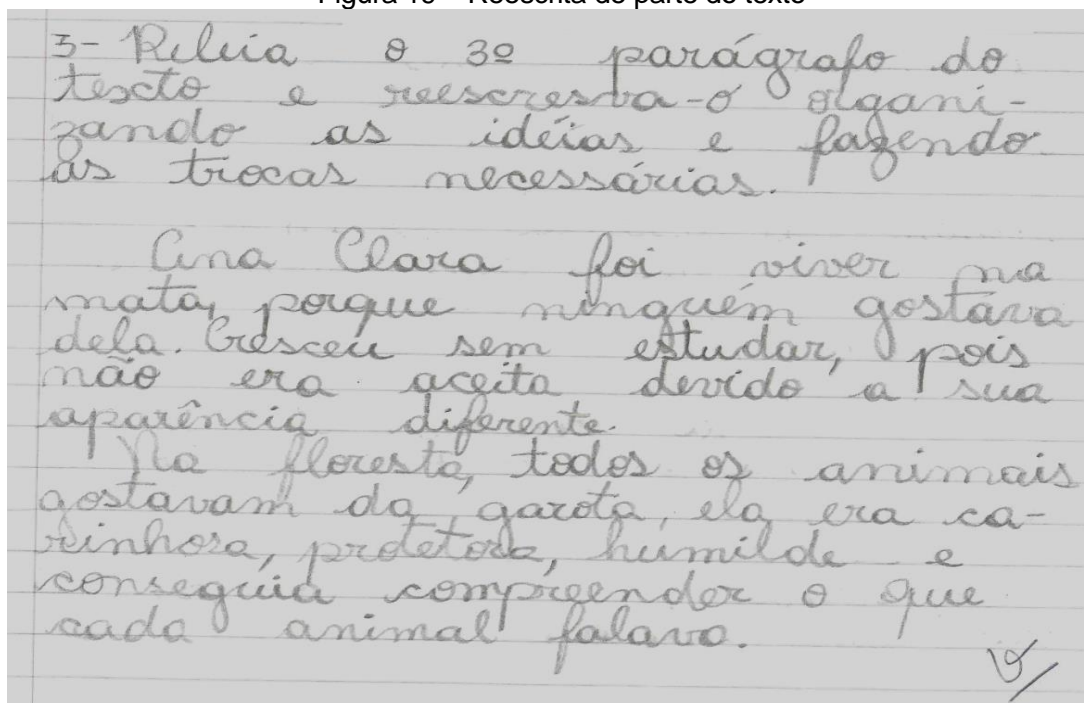 Figura 10 – Reescrita de parte do texto
3- Releia o 3º parágrafo do
texcto e reescresva-o olgani-
zando as idéias e fazendo
as trocas necessárias.
Ana Clara foi viver na
mata, porque ninguém gostava
dela. Cresceu sem estudar, pois
não era aceita devido a sua
aparência diferente.
Na floresta, todos os animais
gostavam da garota, ela era ca-
rinhosa, protetora, humilde e
conseguia compreender o que
cada animal falava.